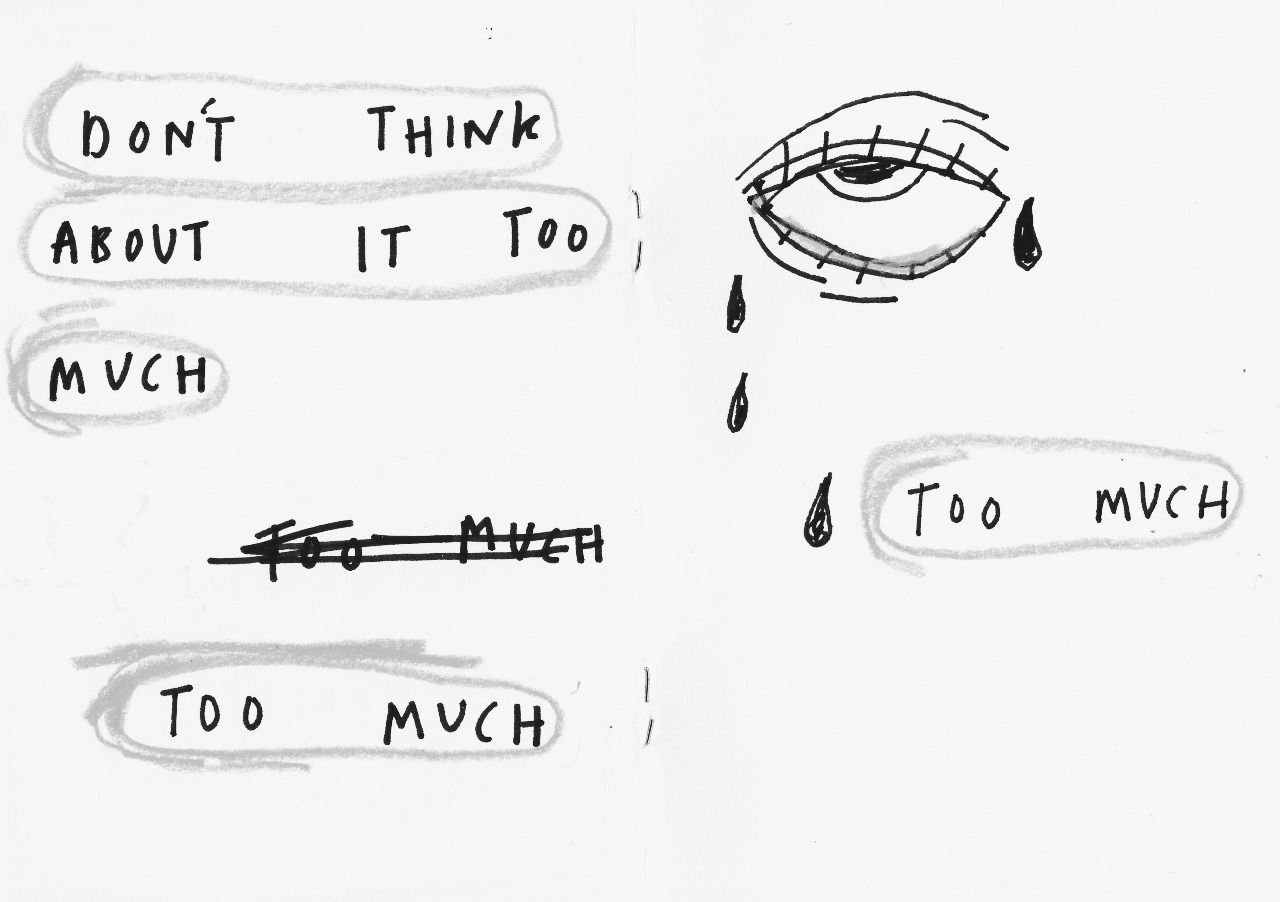 DON'T THINK
ABOUT IT TOO
MUCH
TOO MUCH
TOO MUCH
TOO MUCH